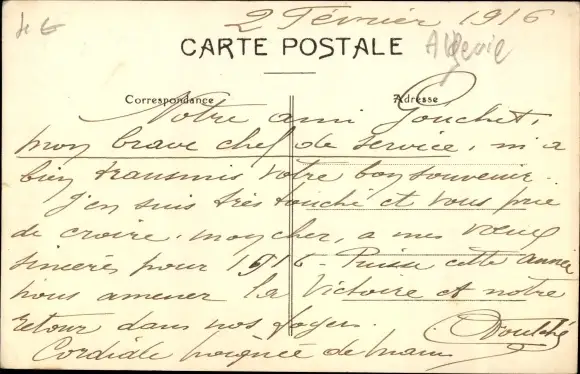 4 €
2 Février 1916
Algérie
CARTE POSTALE
Correspondance
Adresse
Notre ami Gouchet,
mon brave chef de service, m'a
bien transmis votre bon souvenir.
J'en suis très touché et vous prie
de croire, mon cher, a mes vœux
sincères pour 1916. Puisse cette année
nous amener la Victoire et notre
retour dans nos foyers.
Cordiale poignée de main